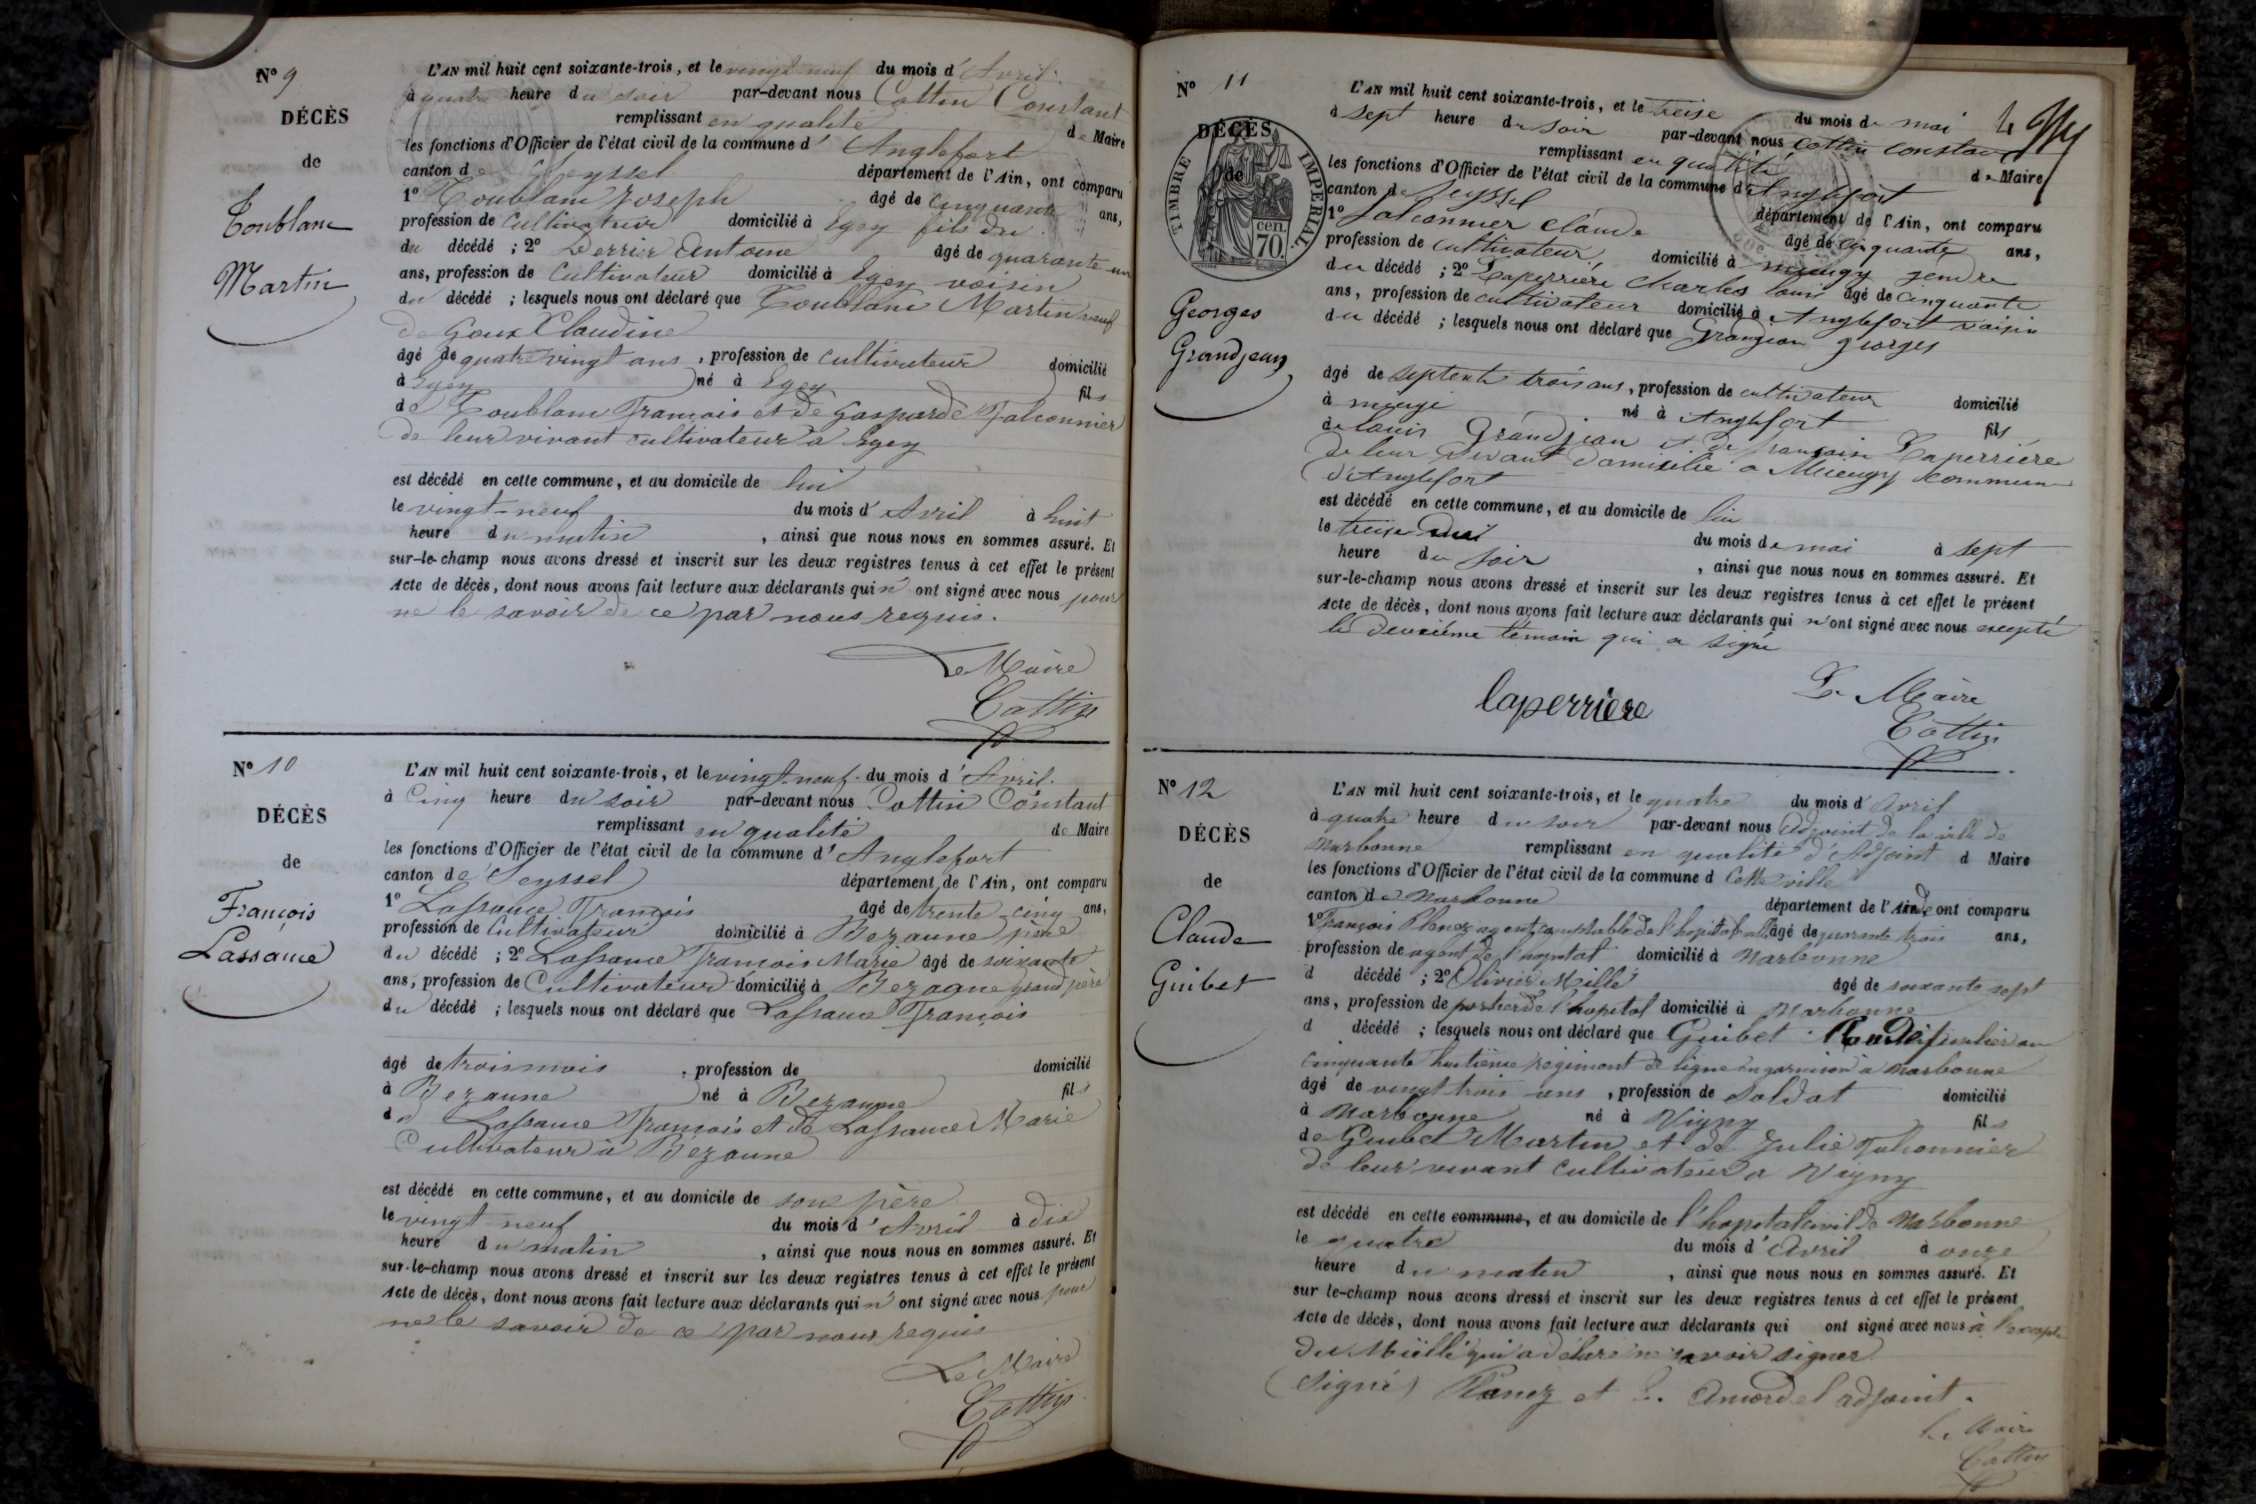 N° 9
DÉCÈS
de
Toublanc
Martin
L'AN mil huit cent soixante-trois, et le vingt neuf du mois d'Avril
à quatre heure du soir par-devant nous Cottin Constant
remplissant en qualité de Maire
les fonctions d'Officier de l'état civil de la commune d'Anglefort
canton de Seyssel département de l'Ain, ont comparu
1° Toublanc Joseph âgé de cinquante ans,
profession de Cultivateur domicilié à Egey fils du
du décédé ; 2° Perrier Antoine âgé de quarante un
ans, profession de Cultivateur domicilié à Egey voisin
du décédé ; lesquels nous ont déclaré que Toublanc Martin veuf
de Goux Claudine
âgé de quatre vingt ans, profession de cultivateur domicilié
à Egey né à Egey fils
de Toublanc François et de Gasparde Falconnier
de leur vivant cultivateur à Egey
est décédé en cette commune, et au domicile de lui
le vingt-neuf du mois d'Avril à huit
heure du matin, ainsi que nous nous en sommes assuré. Et
sur-le-champ nous avons dressé et inscrit sur les deux registres tenus à cet effet le présent
Acte de décès, dont nous avons fait lecture aux déclarants qui n'ont signé avec nous pour
ne le savoir de ce par nous requis.
Le Maire
Cottin
N° 10
DÉCÈS
de
François
Lassauce
L'AN mil huit cent soixante-trois, et le vingt-neuf du mois d'Avril.
à Cinq heure du soir par-devant nous Cottin Constant
remplissant en qualité de Maire
les fonctions d'Officier de l'état civil de la commune d'Anglefort
canton de Seyssel département de l'Ain, ont comparu
1° Lassauce François âgé de trente-cinq ans,
profession de Cultivateur domicilié à Bezaune père
du décédé ; 2° Lassauce François Marie âgé de soixante
ans, profession de Cultivateur domicilié à Bezaune grand père
du décédé ; lesquels nous ont déclaré que Lassauce François
âgé de trois mois, profession de domicilié
à Bezaune né à Bezaune fils
de Lassauce François et de Lassauce Marie
Cultivateur à Bezaune
est décédé en cette commune, et au domicile de son père
le vingt-neuf du mois d'Avril à dix
heure du matin, ainsi que nous nous en sommes assuré. Et
sur-le-champ nous avons dressé et inscrit sur les deux registres tenus à cet effet le présent
Acte de décès, dont nous avons fait lecture aux déclarants qui n'ont signé avec nous pour
ne le savoir de ce par nous requis
Le Maire
Cottin
N° 11
DÉCÈS
de
TIMBRE IMPERIAL
70 cen.
Georges
Grandjean
4
L'AN mil huit cent soixante-trois, et le treise du mois de mai
à sept heure du soir par-devant nous Cottin Constant
remplissant en qualité de Maire
les fonctions d'Officier de l'état civil de la commune d'Anglefort
canton de Seyssel département de l'Ain, ont comparu
1° Falconnier Claude âgé de cinquante ans,
profession de cultivateur domicilié à mieugy gendre
du décédé ; 2° Laperrière Charles louis âgé de cinquante
ans, profession de cultivateur domicilié à Anglefort voisin
du décédé ; lesquels nous ont déclaré que Grandjean georges
âgé de septente trois ans, profession de cultivateur domicilié
à mieugi né à Anglefort fils
de louis Grandjean et de françoise Laperrière
de leur vivant domicilié à Mieugy commune
d'Anglefort
est décédé en cette commune, et au domicile de lui
le treise mai du mois de mai à sept
heure du soir, ainsi que nous nous en sommes assuré. Et
sur-le-champ nous avons dressé et inscrit sur les deux registres tenus à cet effet le présent
Acte de décès, dont nous avons fait lecture aux déclarants qui n'ont signé avec nous excepté
le deuxième témoin qui a signé
laperriere
Le Maire
Cottin
N° 12
DÉCÈS
de
Claude
Guibet
L'AN mil huit cent soixante-trois, et le quatre du mois d'Avril
à quatre heure du soir par-devant nous Adjoint de la ville de
Narbonne remplissant en qualité d'Adjoint d Maire
les fonctions d'Officier de l'état civil de la commune d Cette ville
canton de Narbonne département de l'Aude, ont comparu
1° François Planez agent comptable de l'hopital âgé de quarante trois ans,
profession de agent de l'hopital domicilié à Narbonne
d décédé ; 2° Olivier Meillé âgé de soixante sept
ans, profession de portier de l'hopital domicilié à Narbonne
d décédé ; lesquels nous ont déclaré que Guibet fusilier au
cinquante huitième régiment de ligne en garnison à Narbonne
âgé de vingt trois ans, profession de Soldat domicilié
à Narbonne né à Vigny fils
de Guibet Martin et de Julie Falconnier
de leur vivant cultivateur à Vigny
est décédé en cette commune, et au domicile de l'hopital civil de Narbonne
le quatre du mois d'Avril à onze
heure du matin, ainsi que nous nous en sommes assuré. Et
sur le-champ nous avons dressé et inscrit sur les deux registres tenus à cet effet le présent
Acte de décès, dont nous avons fait lecture aux déclarants qui ont signé avec nous à l'exception
du Meillé qui a déclaré ne savoir signer
(Signé) Planez et l'adjoint.
Le Maire
Cottin